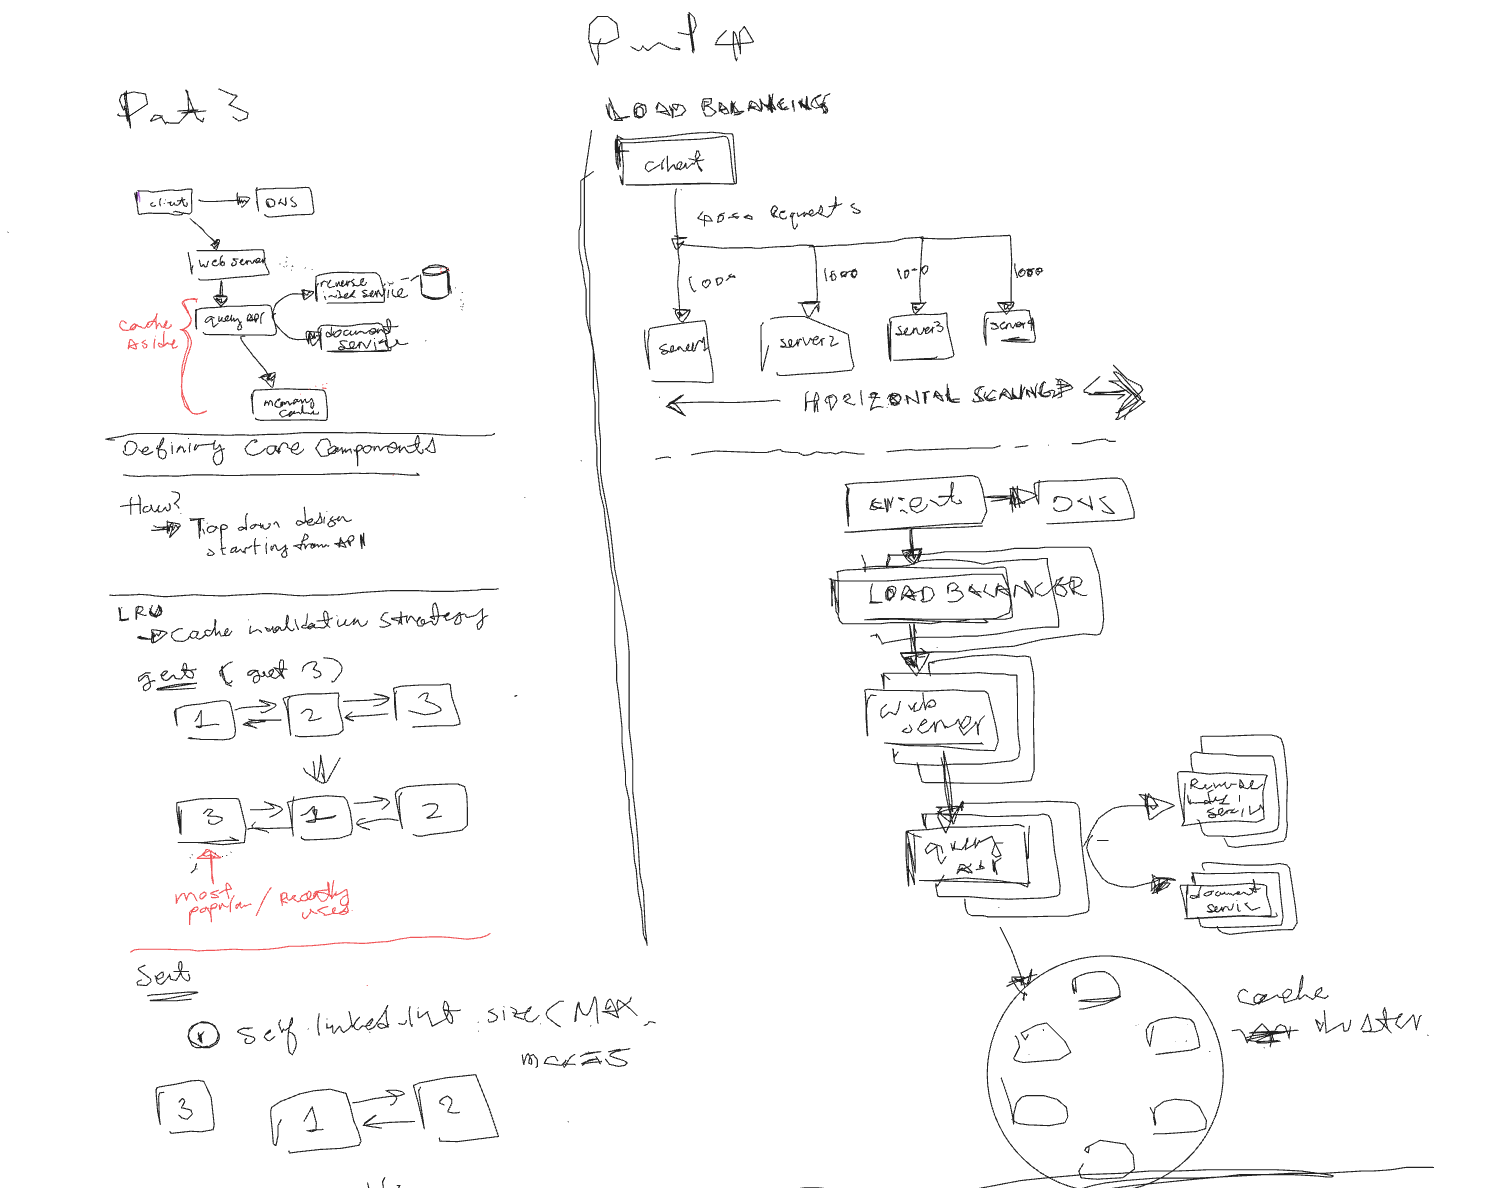 Part 3
client
DNS
web server
reverse
index service
query API
document
service
cache
aside
memory
cache
Defining Core Components
How?
Top down design
starting from API
LRU
Cache invalidation strategy
get ( get 3 )
1
2
3
3
1
2
most
popular / Recently
used
Set
self.linked_list size < MAX
max = 5
3
1
2
Part 4
LOAD BALANCING
client
4000 Requests
1000
1000
1000
1000
server1
server2
server3
server4
HORIZONTAL SCALING
client
DNS
LOAD BALANCER
Web
server
query
API
Reverse
index
service
document
service
cache
cluster